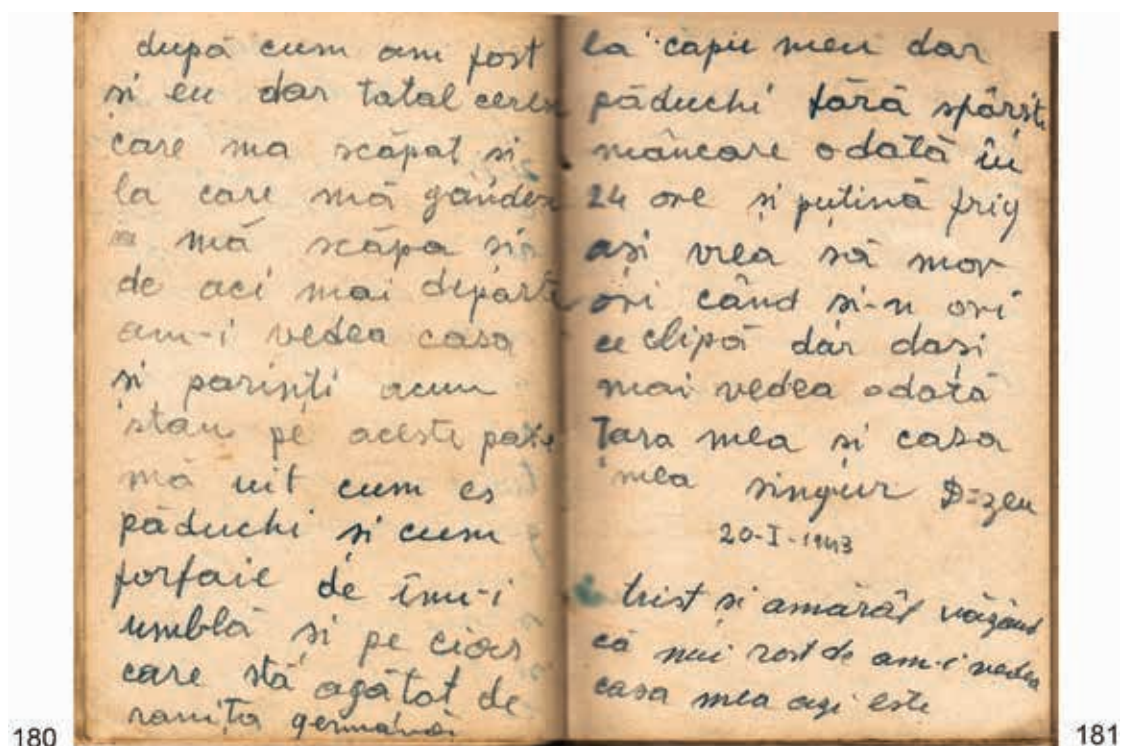 după cum am fost
si eu dar tatal ceres
care ma scăpat si
la care mă gândesc
mă scăpa și
de aci mai departe
am-i vedea casa
si parinți acum
stau pe aceste
mă uit cum es
păduchi si cum
forfaie de îmi-i
umblă si pe
care stă agătat de
ranița germană
180
la capu meu dar
păduchi fără spârșit
mâncare odată în
24 ore și puțină frig
asi vrea să mor
ori când si-n ori
ce clipă dar dași
mai vedea odată
Țara mea si casa
mea singur D=zeu
20-I-1943
trist si amărât văzând
că nui rost de am-i vedea
casa mea azi este
181